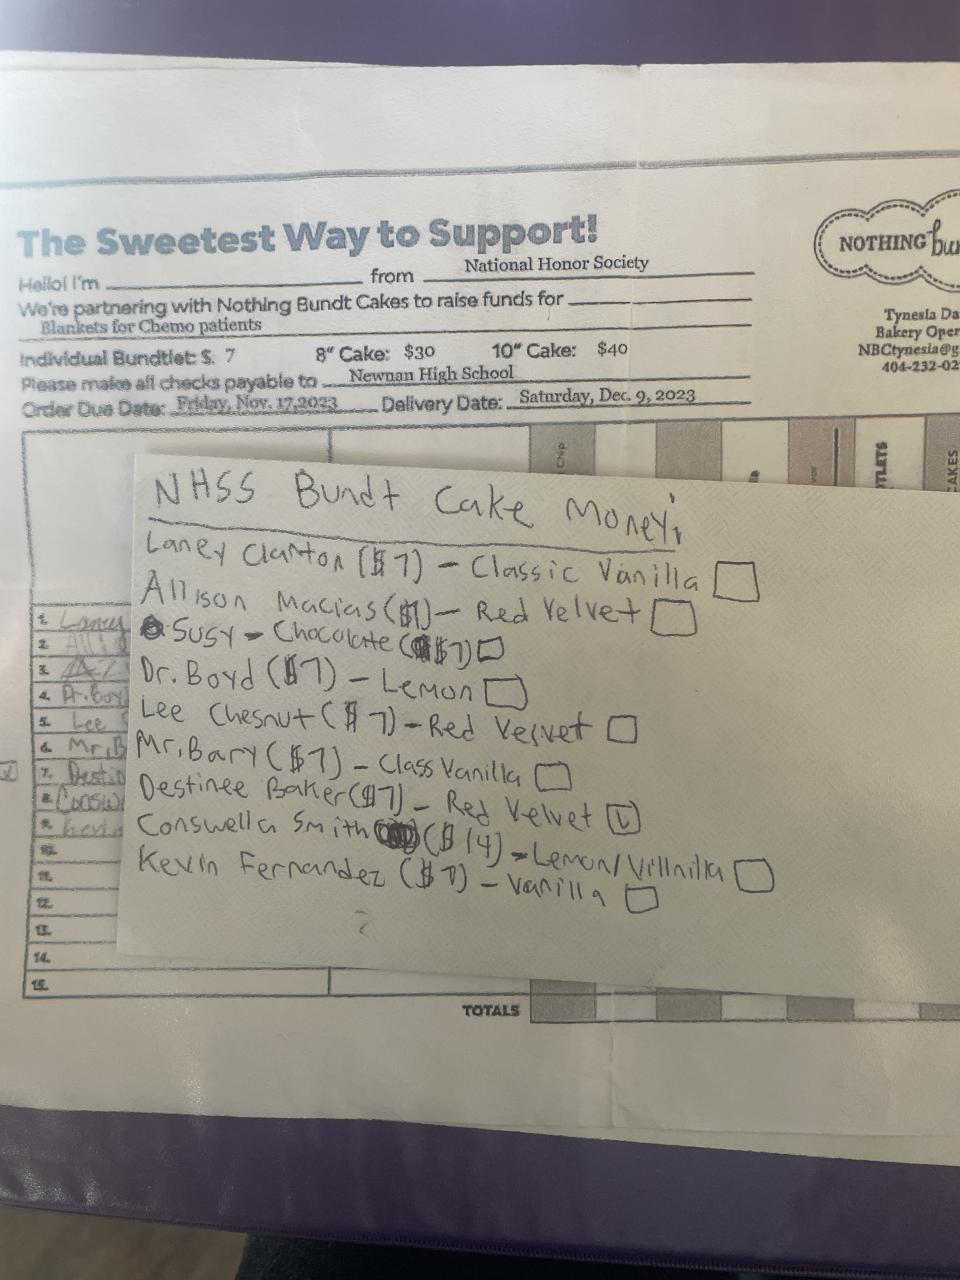 The Sweetest Way to Support!
Hello! I'm from National Honor Society
We're partnering with Nothing Bundt Cakes to raise funds for
Blankets for Chemo patients
Individual Bundtlet: $ 7 8" Cake: $30 10" Cake: $40
Please make all checks payable to Newnan High School
Order Due Date: Friday, Nov. 17,2023 Delivery Date: Saturday, Dec. 9, 2023
NOTHING
Tynesia Da
Bakery Oper
NBCtynesia@g
404-232-02
Chip
TLETS
AKES
NHSS Bundt Cake Money:
Laney Clanton ($7) - Classic Vanilla
Allison Macias ($7) - Red Velvet
Susy - Chocolate ($7)
Dr. Boyd ($7) - Lemon
Lee Chesnut ($7) - Red Velvet
Mr. Bary ($7) - Class Vanilla
Destinee Baker ($7) - Red Velvet
Conswella Smith ($14) - Lemon/Villnilla
Kevin Fernandez ($7) - Vanilla
1. Laney
2. Alli
3.
4. Dr. Boy
5. Lee
6. Mr. B
7. Destin
8. Consw
9. Kevin
10.
11.
12.
13.
14.
15.
TOTALS